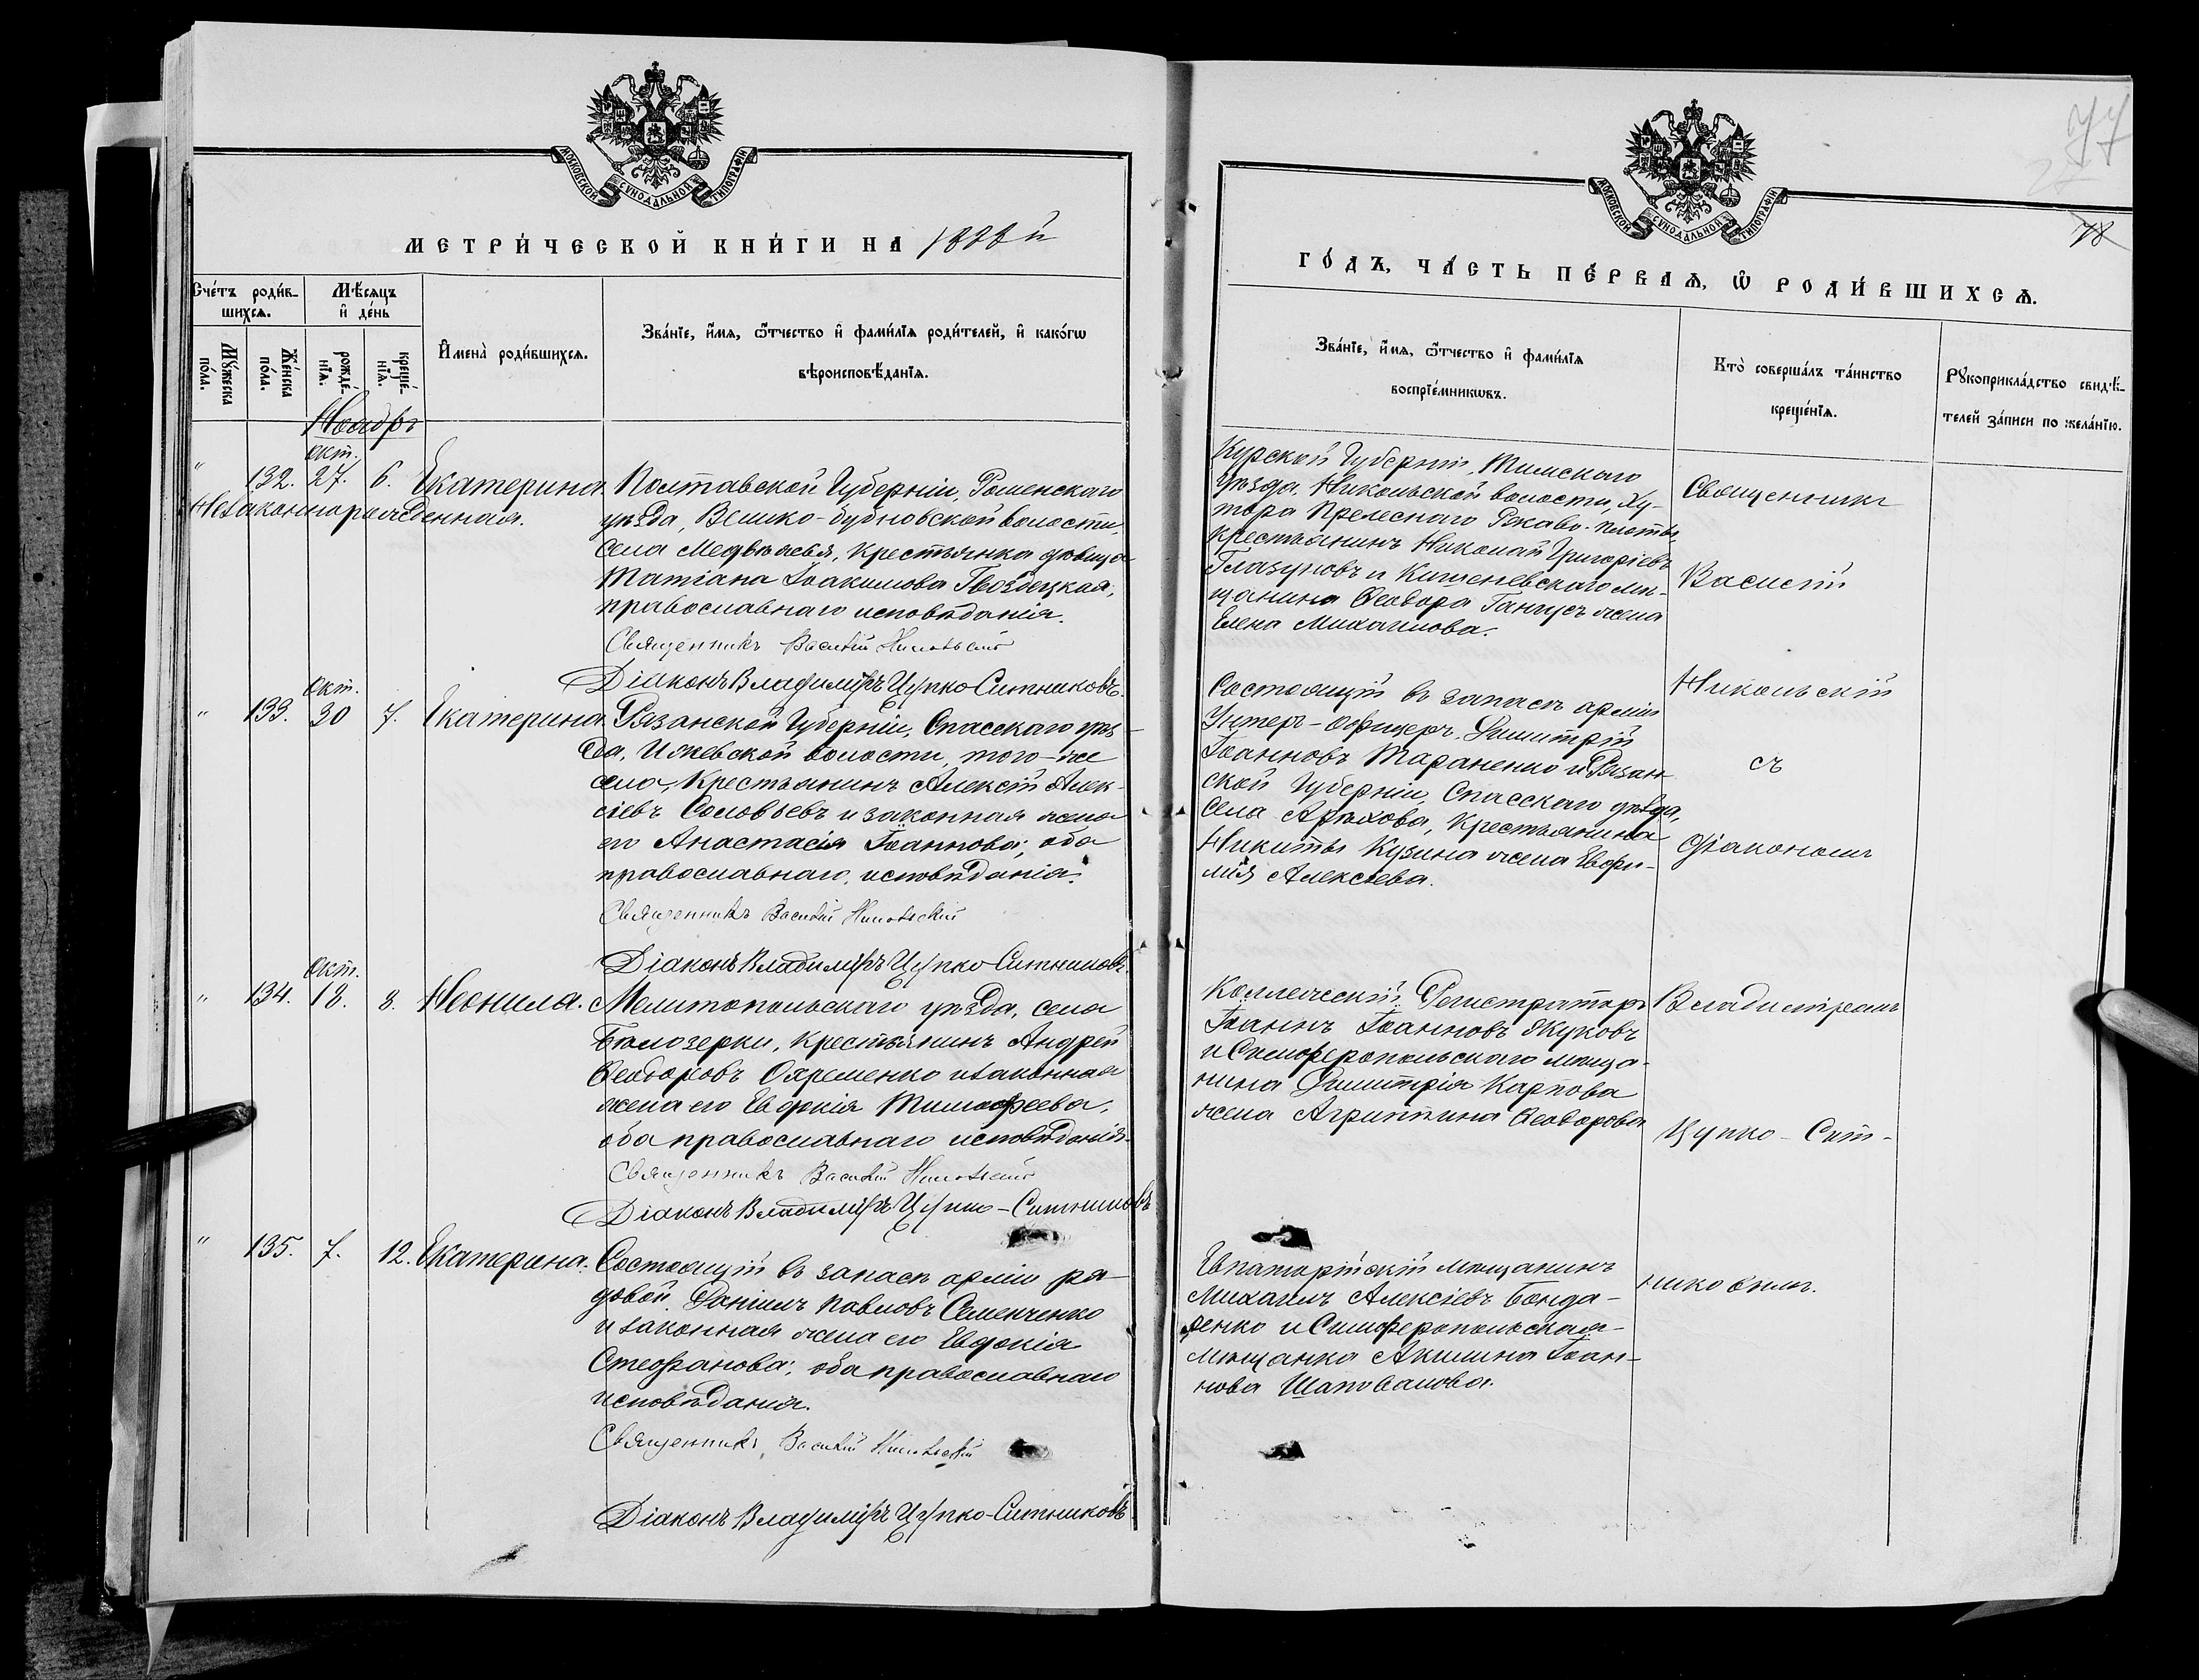 МОСКОВСКОЙ СѴНОДАЛЬНОЙ ТИПОГРАФІИ
МЕТРИ́ЧЕСКОЙ КНИ́ГИ НА 1898 й
Сче́тъ роди́в-
шихсѧ.
Мѣ́сяцъ
и҆ де́нь
И҆мена̀ роди́вшихсѧ.
Зва́нїе, и҆́мѧ, ѻ҆́тчество и҆ фами́лїѧ роди́телей, и҆ како́гѡ
вѣроисповѣ́данїѧ.
Мꙋ́жеска
по́ла.
Же́нска
по́ла.
рожде́-
нїѧ.
креще́-
нїѧ.
Ноябрь
окт.
" 132. 27. 6. Екатерина.
Незаконнорожденная.
Полтавской Губерніи, Роменскаго
уѣзда, Велико-бубновской волости,
села Медвѣжья, крестьянка дѣвица
Татіана Іоакимова Гвоздецкая,
православнаго исповѣданія.
Священникъ Василій Никольскій
Діаконъ Владиміръ Цупко-Ситниковъ.
окт.
" 133. 30 7. Екатерина.
Рязанской Губерніи, Спасскаго уѣз-
да, Ижевской волости, того-же
села, крестьянинъ Алексій Алек-
сіевъ Соловьевъ и законная жена
его Анастасія Іоаннова; оба
православнаго исповѣданія.
Священникъ Василій Никольскій
Діаконъ Владиміръ Цупко-Ситниковъ.
окт.
" 134. 18. 8. Неонила.
Мелитопольскаго уѣзда, села
Бѣлозерки, крестьянинъ Андрей
Ѳеодоровъ Охременко и законная
жена его Евдокія Тимофеева,
оба православнаго исповѣданія.
Священникъ Василій Никольскій
Діаконъ Владиміръ Цупко-Ситниковъ
" 135. 7. 12. Екатерина.
Состоящій въ запасѣ арміи ря-
довой Даніилъ Павловъ Семенченко
и законная жена его Евдокія
Стефанова; оба православнаго
исповѣданія.
Священникъ Василій Никольскій
Діаконъ Владиміръ Цупко-Ситниковъ
77
78
МОСКОВСКОЙ СѴНОДАЛЬНОЙ ТИПОГРАФІИ
ГО́ДЪ, ЧА́СТЬ ПЕ́РВАѦ, Ѡ҆ РОДИ́ВШИХСѦ.
Зва́нїе, и҆́мѧ, ѻ҆́тчество и҆ фами́лїѧ
воспрїе́мникѡвъ.
Кто̀ соверша́лъ та́инство
креще́нїѧ.
Рꙋкоприкла́дство свидѣ́-
телей за́писи по жела́нїю.
Курской Губерніи, Тимскаго
уѣзда, Никольской волости, Ху-
тора Прелеснаго Ржаво-плоты,
крестьянинъ Николай Григоріевъ
Глазуновъ и Кишеневскаго мѣ-
щанина Ѳеодора Ганчусъ жена
Елена Михаилова.
Состоящій въ запасѣ арміи
Унтеръ-офицеръ Димитрій
Іоанновъ Тараненко и Рязан-
ской Губерніи, Спасскаго уѣзда,
села Арѣхова, крестьянина
Никиты Кузина жена Евфи-
мія Алексѣева.
Коллежскій Регистраторъ
Іоаннъ Іоанновъ Жуковъ
и Симферопольскаго мѣща-
нина Димитрія Карпова
жена Агриппина Ѳеодорова
Евпаторійскій мѣщанинъ
Михаилъ Алексіевъ Бонда-
ренко и Симферопольская
мѣщанка Акилина Іоан-
нова Шаповалова.
Священникъ
Василій
Никольскій
съ
діакономъ
Владиміромъ
Цупко-Сит-
никовымъ.